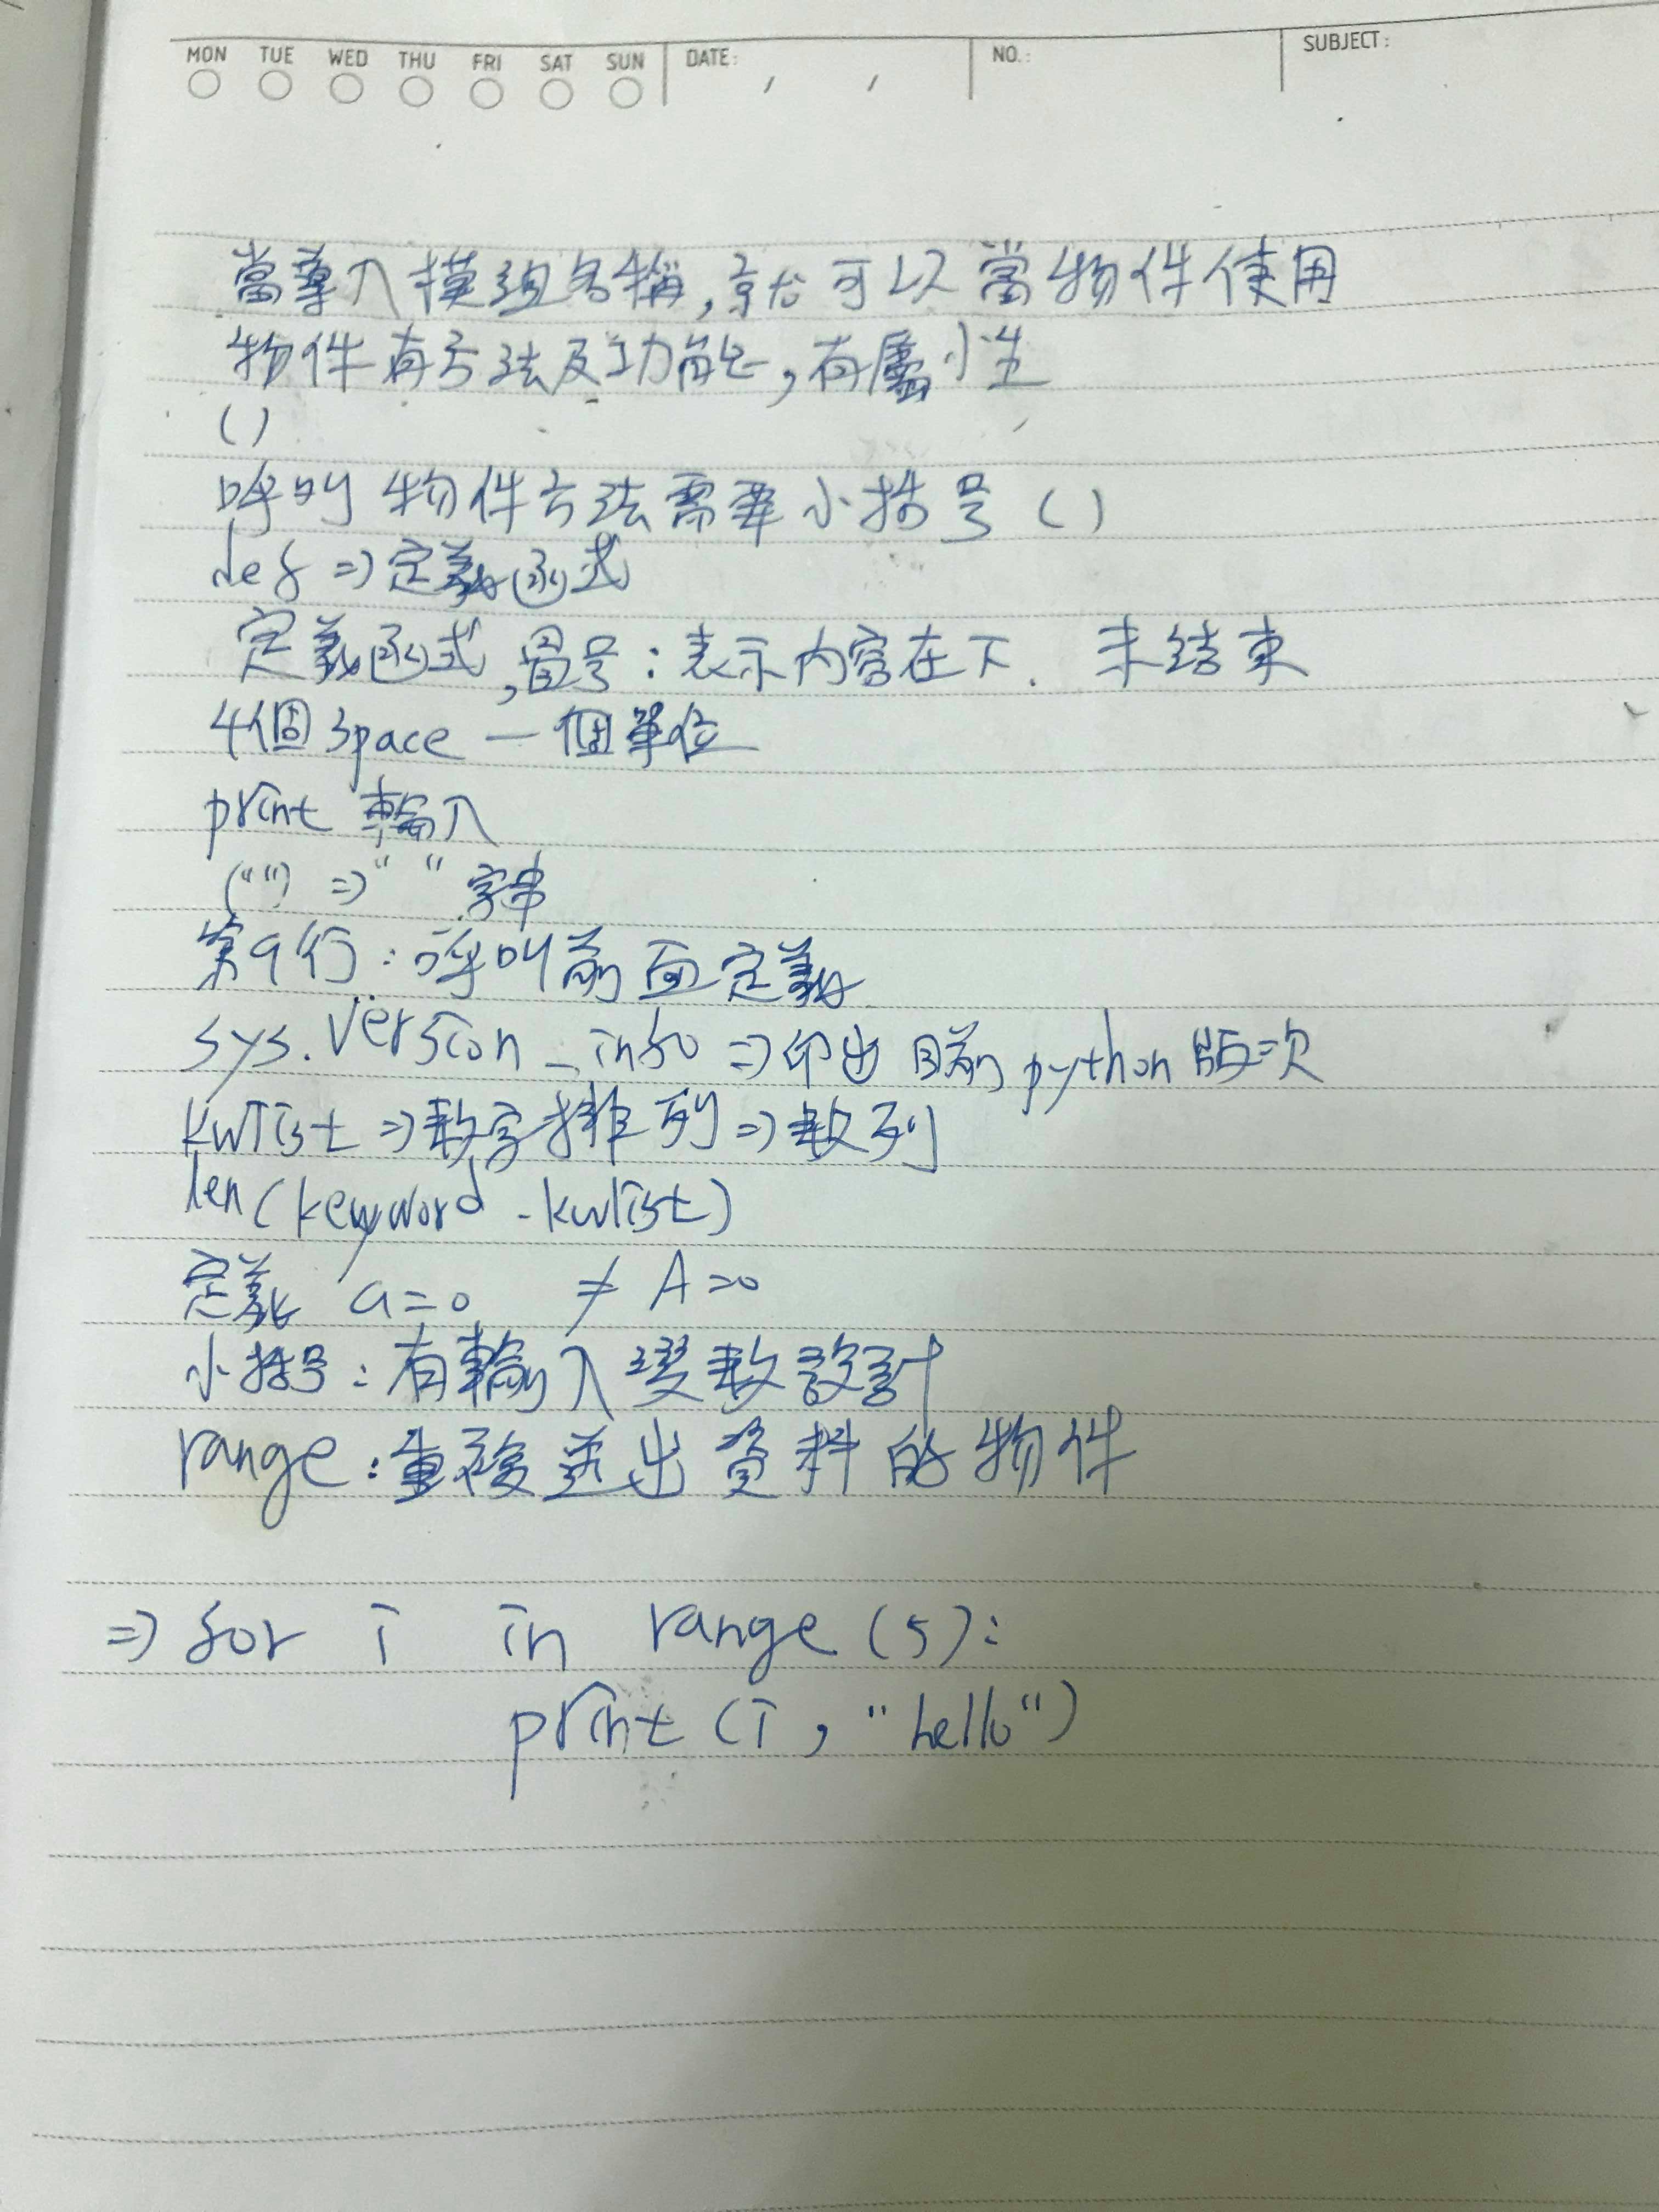 MON TUE WED THU FRI SAT SUN DATE: / / NO.: SUBJECT:
當導入模組名稱,就可以當物件使用
物件有方法及功能,有屬性
()
呼叫 物件方法需要小括号()
def => 定義函式
定義函式,冒号:表示內容在下. 未結束
4個space 一個單位
print 輸入
("") => " " 字串
第9行:呼叫前面定義
sys.version_info => 印出目前python版次
kwlist => 數字排列 => 數列
len(keyword.kwlist)
定義 a=0 ≠ A=0
小括号:有輸入變數設計
range:重複送出資料的物件
=> for i in range(5):
print(i, "hello")